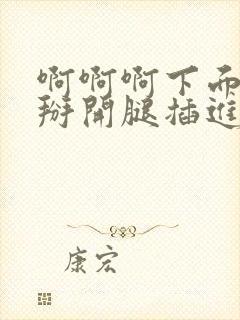 啊啊啊下面
掰開腿插進
康宏